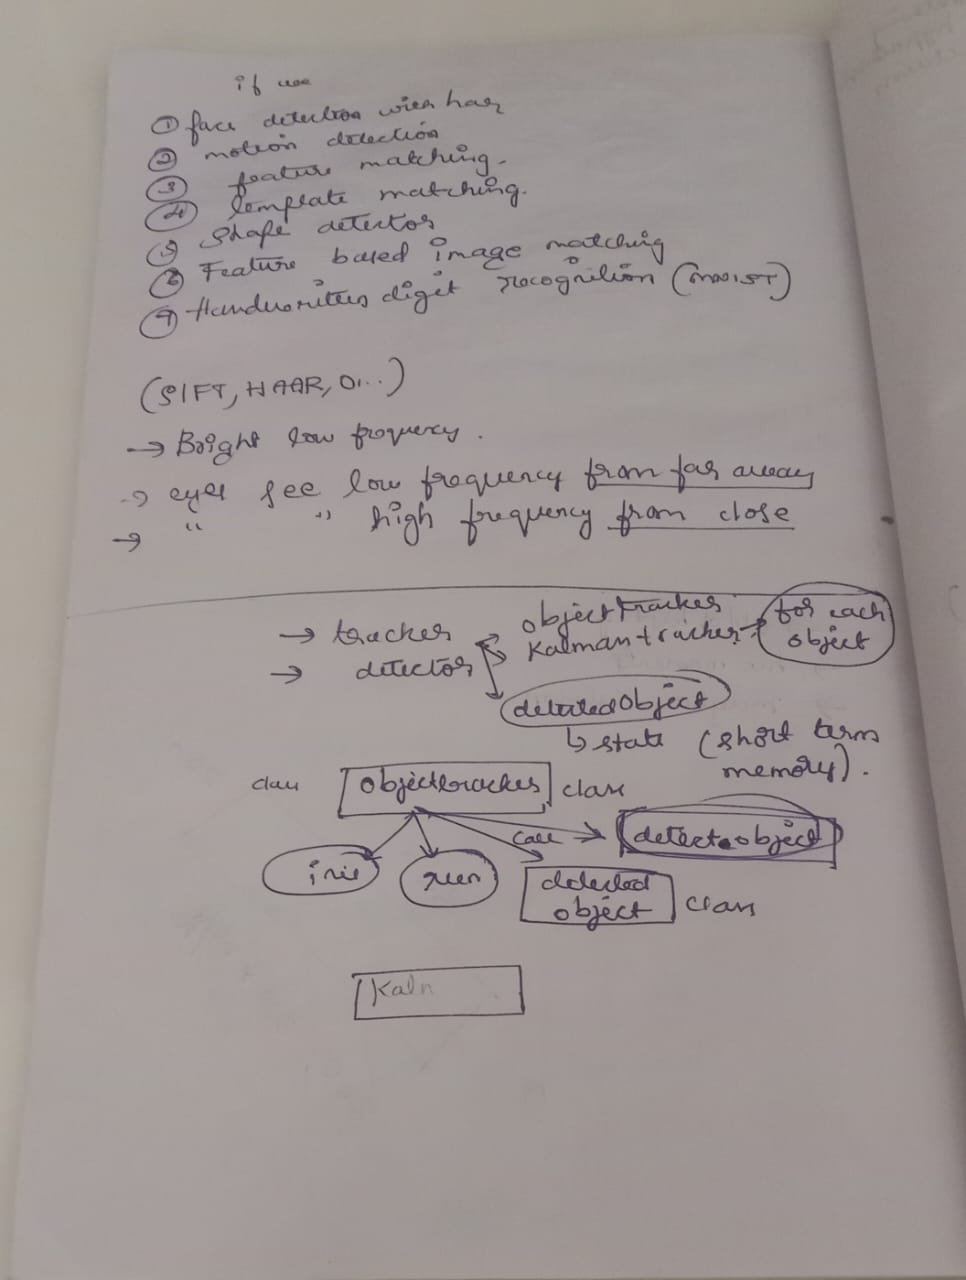 if use
① face detection with haar
② motion detection
③ feature matching.
④ template matching.
⑤ shape detector
⑥ Feature based image matching
⑦ Handwritten digit recognition (MNIST)
(SIFT, HAAR, O...)
→ Bright low frequency.
→ eyes see low frequency from far away
→ " " high frequency from close
→ tracker
→ detector
objecttracker
Kalmantracker → for each object
detectedObject
↳ state (short term memory).
class objecttracker class
init
run
call → detect.object
detected object class
Kaln